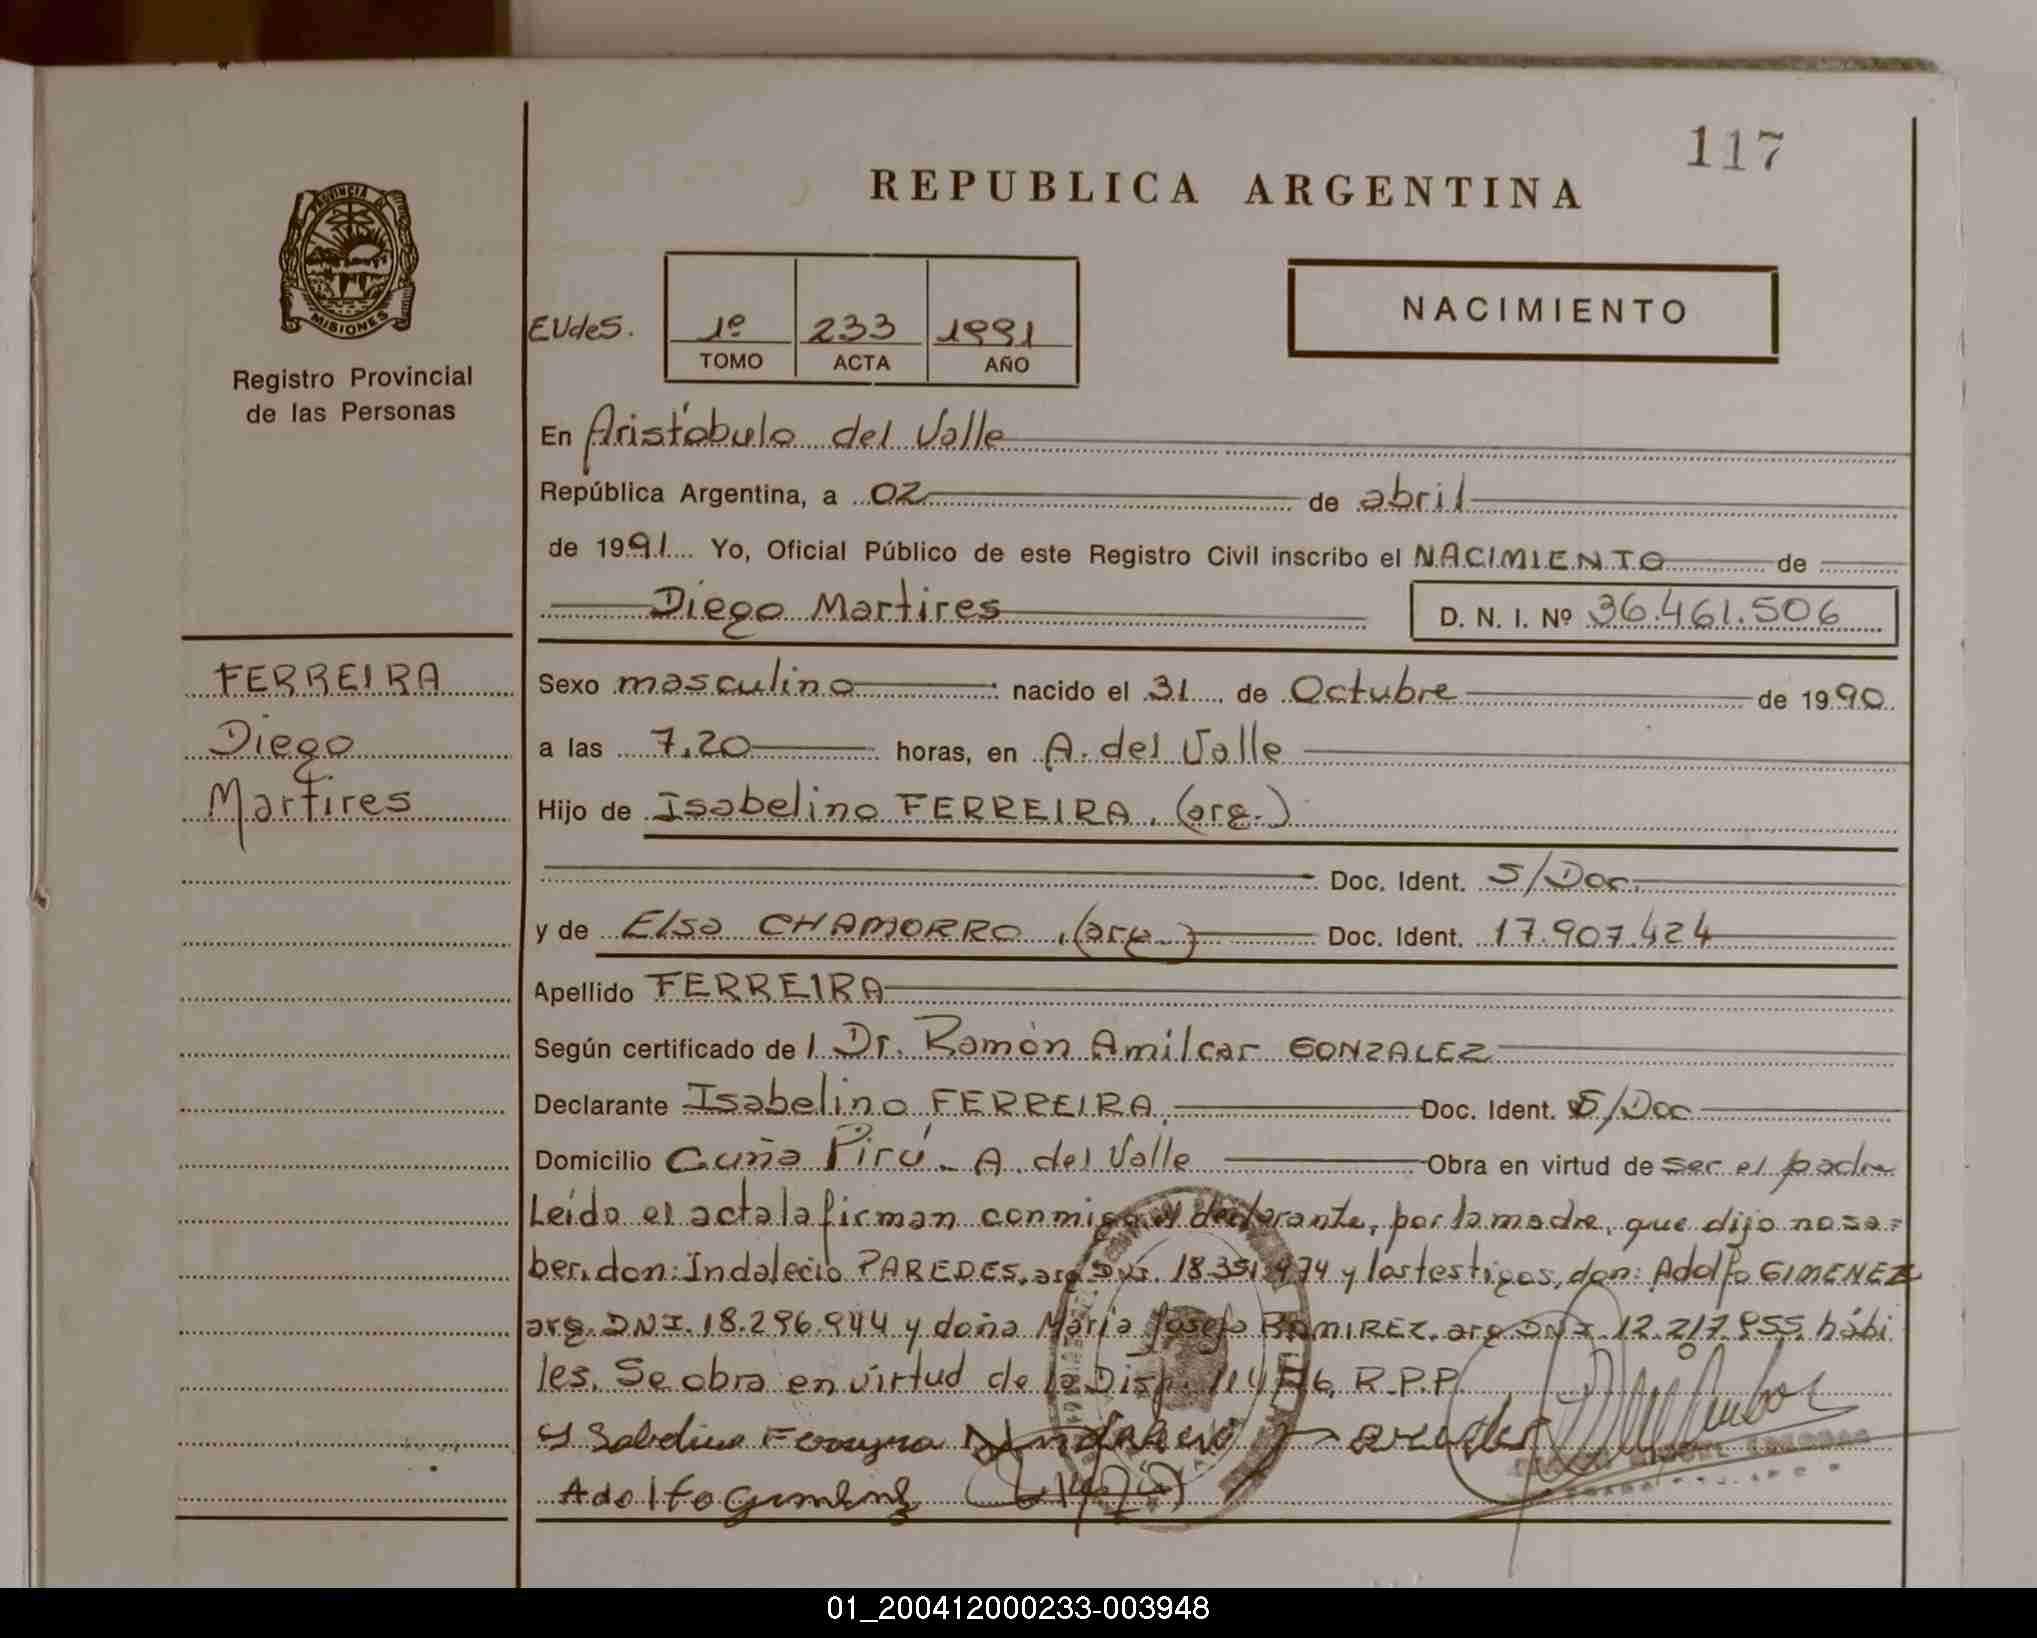 117
REPUBLICA ARGENTINA
PROVINCIA DE MISIONES
Registro Provincial
de las Personas
EUdeS. 1º 233 1991
TOMO ACTA AÑO
NACIMIENTO
En Aristóbulo del Valle
República Argentina, a 02 de abril
de 1991 Yo, Oficial Público de este Registro Civil inscribo el NACIMIENTO de
Diego Martires D. N. I. Nº 36.461.506
FERREIRA
Diego
Martires
Sexo masculino nacido el 31 de Octubre de 1990
a las 7.20 horas, en A. del Valle
Hijo de Isabelino FERREIRA. (arg.)
Doc. Ident. S/Doc.
y de Elsa CHAMORRO .(arg.) Doc. Ident. 17.907.424
Apellido FERREIRA
Según certificado de l Dr. Ramón Amilcar GONZALEZ
Declarante Isabelino FERREIRA. Doc. Ident. S/Doc
Domicilio Cuña Pirú - A. del Valle Obra en virtud de ser el padre
Leída el acta la firman conmigo el declarante, por la madre, que dijo no sa=
ber, don: Indalecio PAREDES, arg. DNI. 18.351.974 y los testigos, don: Adolfo GIMENEZ
arg. DNI. 18.296.944 y doña María Josefa RAMIREZ. arg. DNI. 12.217.955, hábi
les. Se obra en virtud de la Disp. 114/76, R.P.P.
Ysabelino Ferreyra Indalecio Paredes
Adolfo Gimenez
01_200412000233-003948